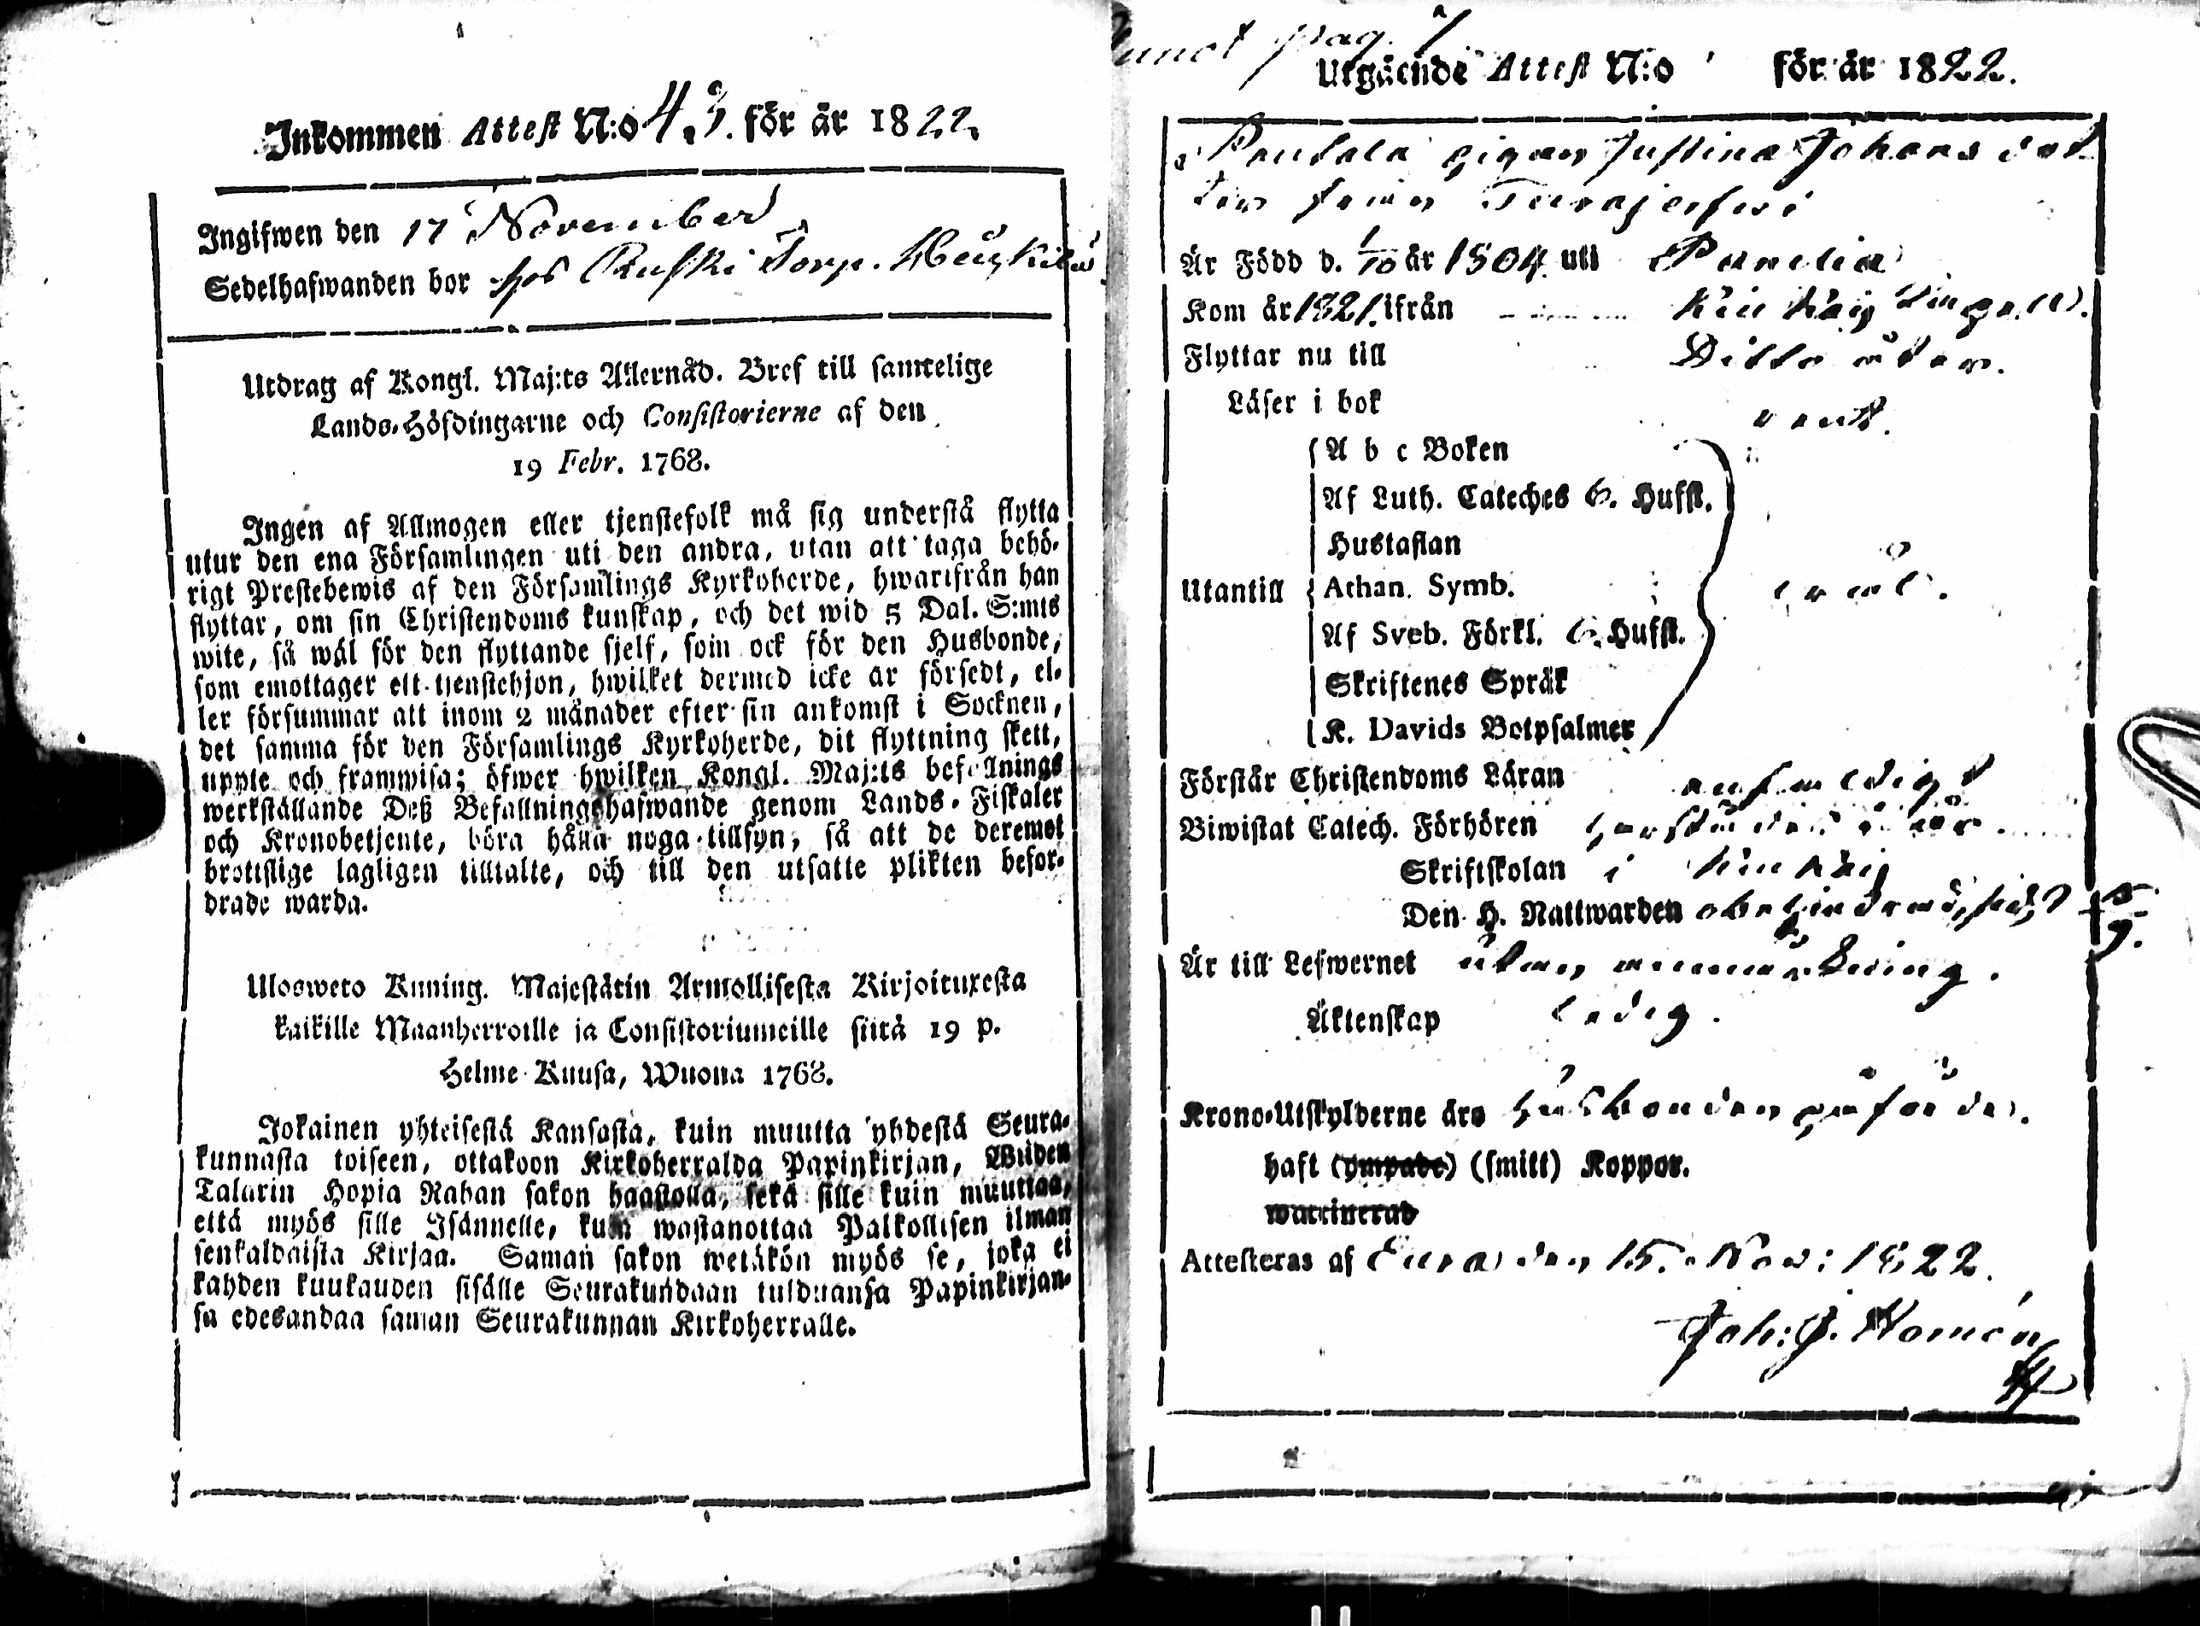 Inkommen Attest N:o 43. för år 1822.
Ingifwen den 17 November
Sedelhafwanden bor hos Ruski Torp.
Utdrag af Kongl. Maj:ts Allernåd. Bref till samtelige
Lands-Höfdingarne och Consistorierne af den
19 Febr. 1768.
Ingen af Allmogen eller tjenstefolk må sig understå flytta
utur den ena Församlingen uti den andra, utan att taga behö-
rigt Prestebewis af den Församlings Kyrkoherde, hwarifrån han
flyttar, om sin Christendoms kunskap, och det wid 5 Dal. S:mts
wite, så wäl för den flyttande sjelf, som ock för den Husbonde,
som emottager ett tjenstehjon, hwilket dermed icke är försedt, el-
ler försummar att inom 2 månader efter sin ankomst i Socknen,
det samma för den Församlings Kyrkoherde, dit flyttning skett,
uppte och framwisa; öfwer hwilken Kongl. Maj:ts befallnings
werkställande Deß Befallningshafwande genom Lands-Fiskaler
och Kronobetjente, böra hålla noga tillsyn, så att de deremot
brottslige lagligen tilltalte, och till den utsatte plikten befor-
drade warda.
Ulosweto Kuning. Majestätin Armollisesta Kirjoituxesta
kaikille Maanherroille ja Consistoriumeille siitä 19 p.
Helme Kuusa, Wuona 1768.
Jokainen yhteisestä Kansasta, kuin muutta yhdestä Seura-
kunnasta toiseen, ottakoon Kirkoherralda Papinkirjan, Wiiden
Talarin Hopia Rahan sakon haastolla, sekä sille kuin muuttaa,
että myös sille Isännelle, kuin wastanottaa Palkollisen ilman
senkaldaista Kirjaa. Saman sakon wetäkön myös se, joka ei
kahden kuukauden sisälle Seurakundaan tulduansa Papinkirjan-
sa edesandaa saman Seurakunnan Kirkoherralle.
pag. 7
Utgående Attest N:o för år 1822.
pigan Justina Johans dot
ter från Turajerfwi
Är Född d. 1/10 år 1804 uti Panelia
Kom år 1821. ifrån Kiukais
Flyttar nu till Ditto åter.
Läser i bok rent.
A b c Boken
Af Luth. Cateches 6. Hufst.
Hustaflan
Utantill Athan. Symb.
Af Sveb. Förkl. 6. Hufst.
Skriftenes Språk
K. Davids Botpsalmer
Förstår Christendoms Läran enfaldigt
Biwistat Catech. Förhören
Skriftskolan i Kiukais
Den H. Nattwarden 5/9.
Är till Lefwernet utan anmärkning.
Äktenskap ledig.
Krono-Utskylderne äro husbonden påförde.
haft (ympade) (smitt) Koppor.
waccinerad
Attesteras af Eura den 15. Nov: 1822.
Joh: J. Homén